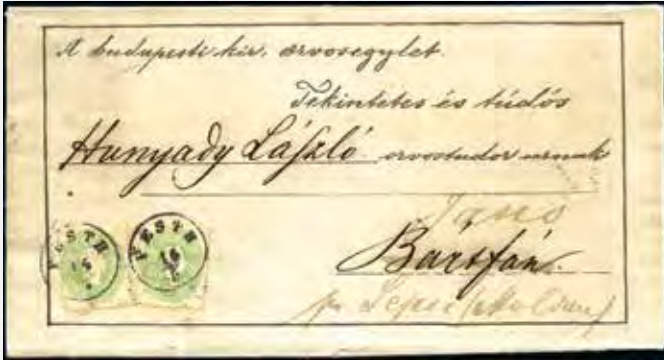 A budapesti kir. orvosegylet.
Tekintetes és túdós
Hunyady László orvostudor urnak
Bártfán.
PESTH
PESTH
16